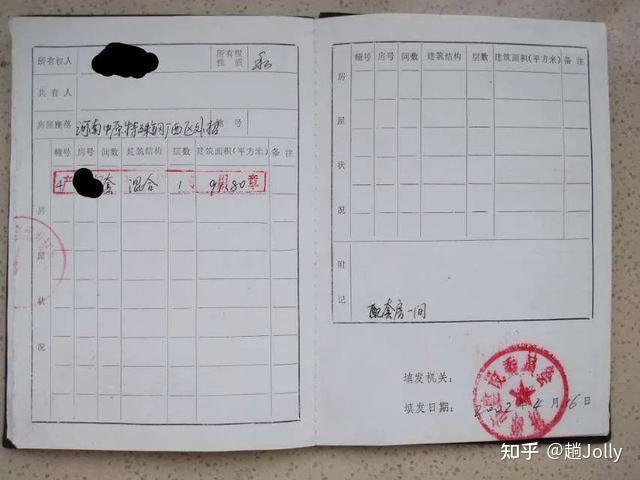 所有权人
所有权性质 私
共有人
房屋座落 河南中原特殊钢厂西区外招 地号
幢号 房号 间数 建筑结构 层数 建筑面积(平方米) 备注
4 套 混合 1 91.80
房屋状况
幢号 房号 间数 建筑结构 层数 建筑面积(平方米) 备注
房屋状况
附记
配套房一间
填发机关:
填发日期: 2002年4月16日
建设委员会
知乎 @趙Jolly